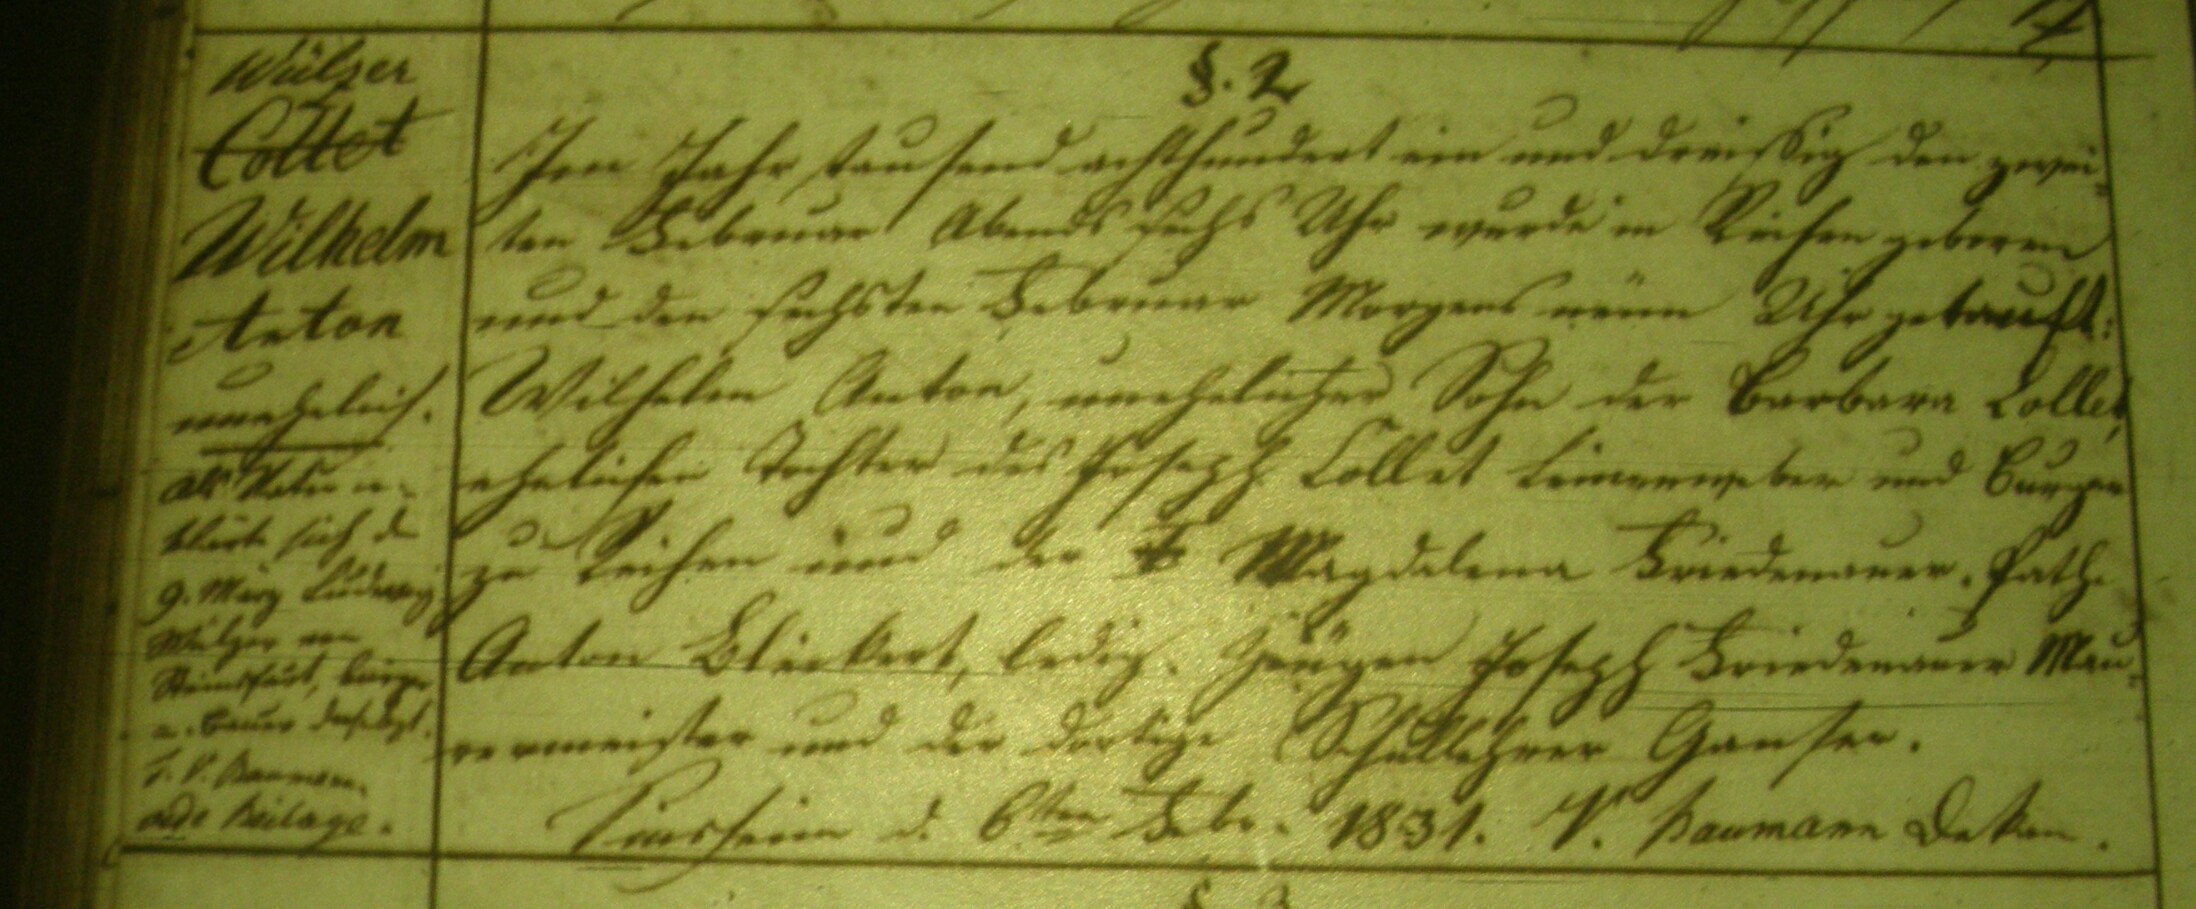 Wülzer
Collet
Wilhelm
Anton
unehelich.
Als Vater er-
klärte sich d.
9. März Ludwig
Wülzer von
Steinsfurt, Bürger
u. Bauer daselbst.
T. V. Baumann.
vide Beilage.
§. 2
Im Jahr tausend achthundert ein und dreissig den zwei-
ten Februar Abends sechs Uhr wurde in Reihen geboren
und den sechsten Februar Morgens neun Uhr getauft:
Wilhelm Anton, unehelicher Sohn der Barbara Collet,
ehelichen Tochter des Joseph Collet Leinenweber und Burger
zu Reihen und der † Magdalena Friedenauer. Pathe
Anton Blickert, ledig. Zeugen Joseph Friedenauer Mau-
rermeister und der dortige Schullehrer Ganser.
Sinsheim d. 6ten Febr. 1831. V. Baumann Dekan.
§. 3